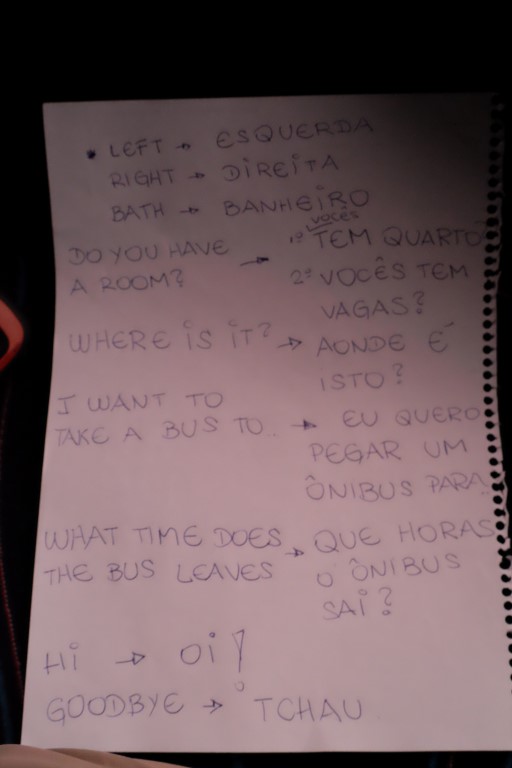 • LEFT → ESQUERDA
RIGHT → DIREITA
BATH → BANHEIRO
DO YOU HAVE A ROOM? → 1º VOCÊS TEM QUARTO
2º VOCÊS TEM VAGAS?
WHERE IS IT? → AONDE É
ISTO?
I WANT TO
TAKE A BUS TO.. → EU QUERO
PEGAR UM
ÔNIBUS PARA..
WHAT TIME DOES
THE BUS LEAVES → QUE HORAS
O ÔNIBUS
SAI?
HI → OI!
GOODBYE → TCHAU